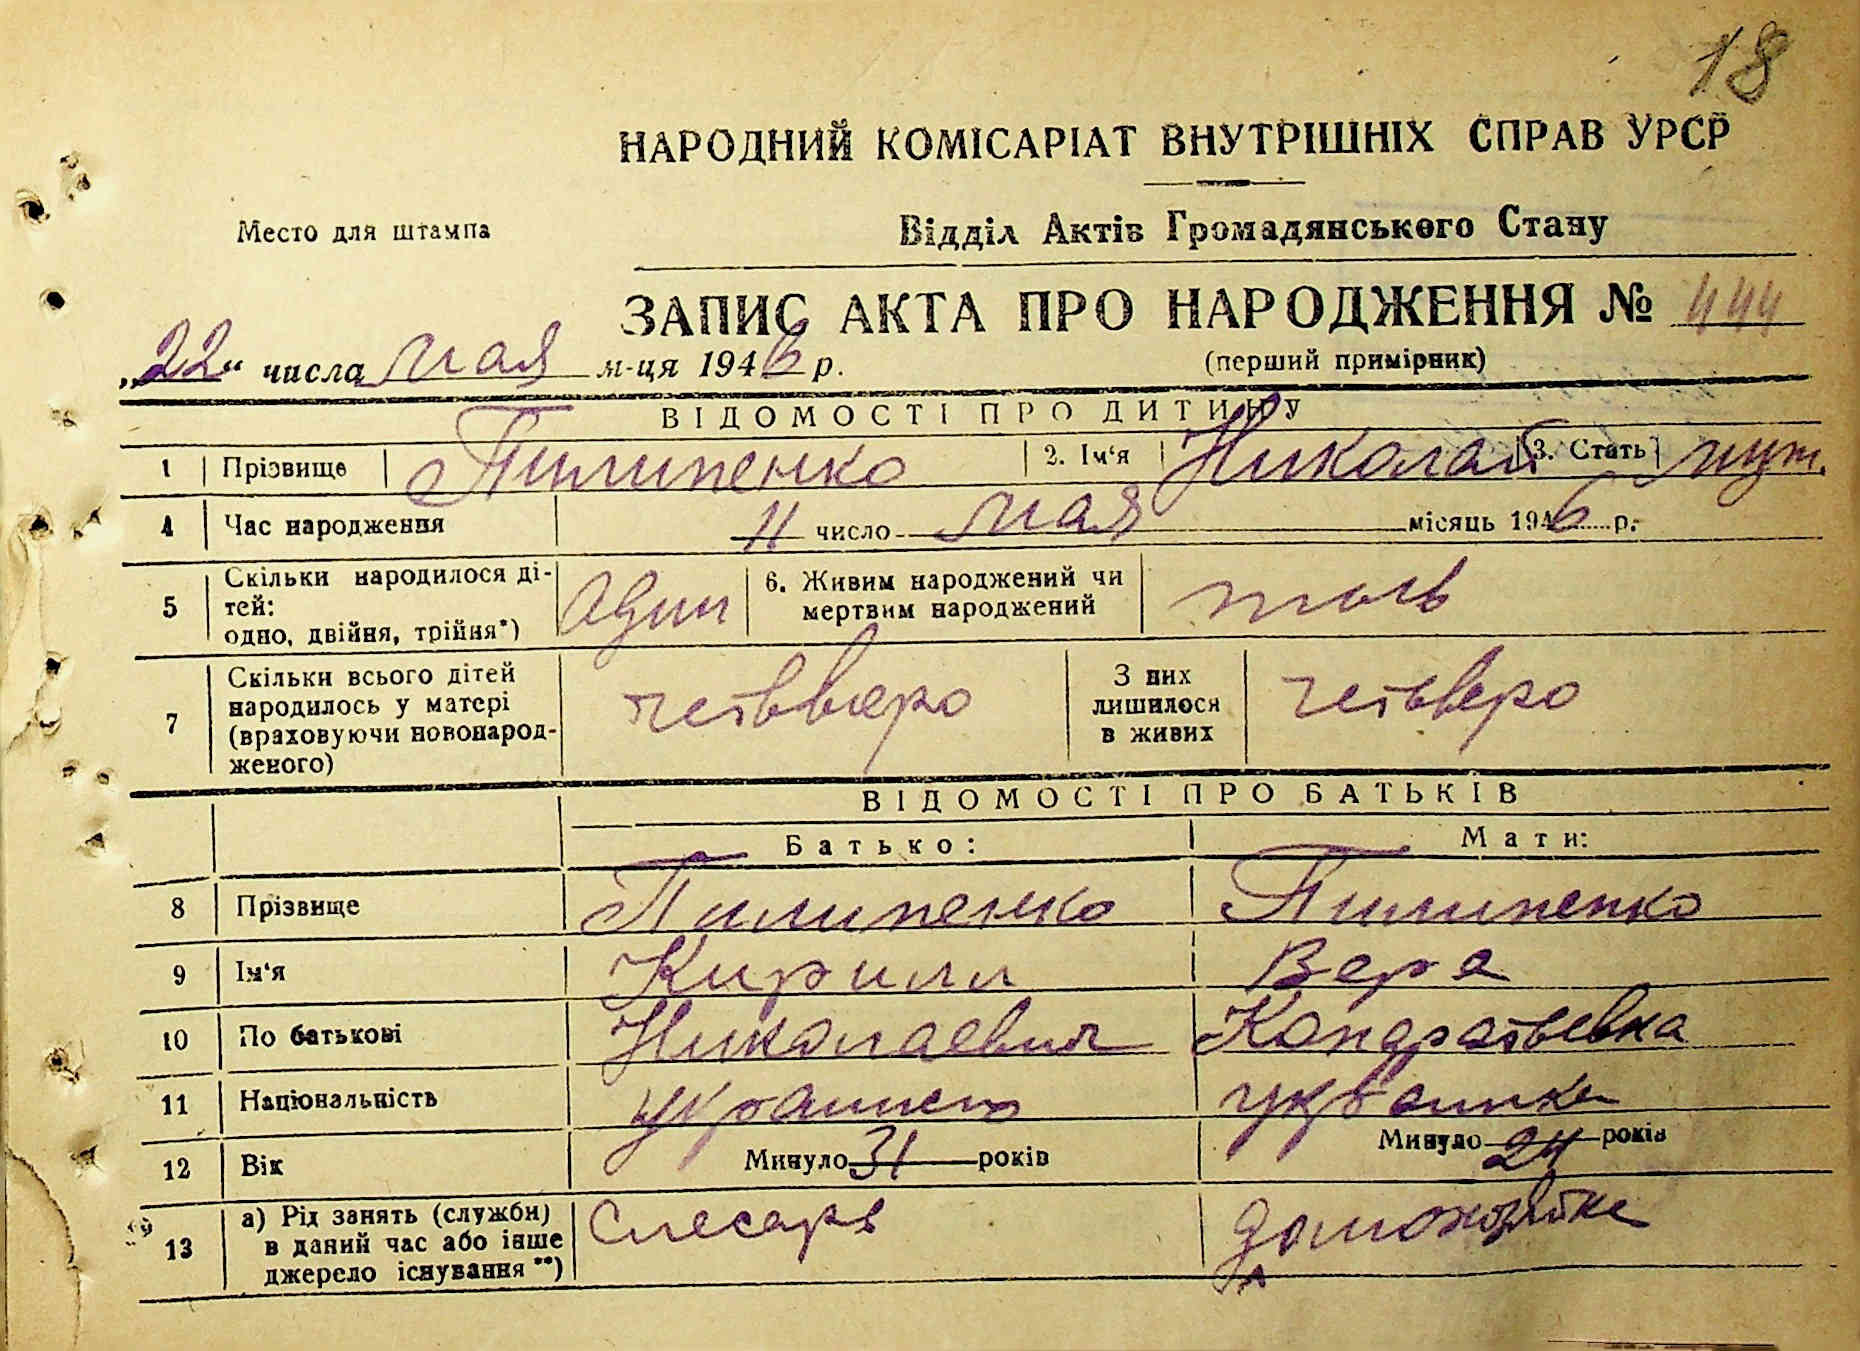 18
НАРОДНИЙ КОМІСАРІАТ ВНУТРІШНІХ СПРАВ УРСР
Место для штампа
Відділ Актів Громадянського Стану
ЗАПИС АКТА ПРО НАРОДЖЕННЯ № 444
„22“ числа мая м-ця 1946 р.
(перший примірник)
ВІДОМОСТІ ПРО ДИТИНУ
1 Прізвище Пилипенко 2. Ім‘я Николай 3. Стать муж.
4 Час народження 11 число мая місяць 1946 р.
5 Скільки народилося ді-
тей:
одно, двійня, трійня*) один
6. Живим народжений чи
мертвим народжений
7 Скільки всього дітей
народилось у матері
(враховуючи новонарод-
женого) четверо
З них
лишилося
в живих четверо
ВІДОМОСТІ ПРО БАТЬКІВ
Батько: Мати:
8 Прізвище Пилипенко Пилипенко
9 Ім‘я Кирилл Вера
10 По батькові Николаевич Кондратьевна
11 Національність украинец украинка
12 Вік Минуло 31 років Минуло 24 років
13 а) Рід занять (служби)
в даний час або інше
джерело існування **) Слесарь домохозяйка